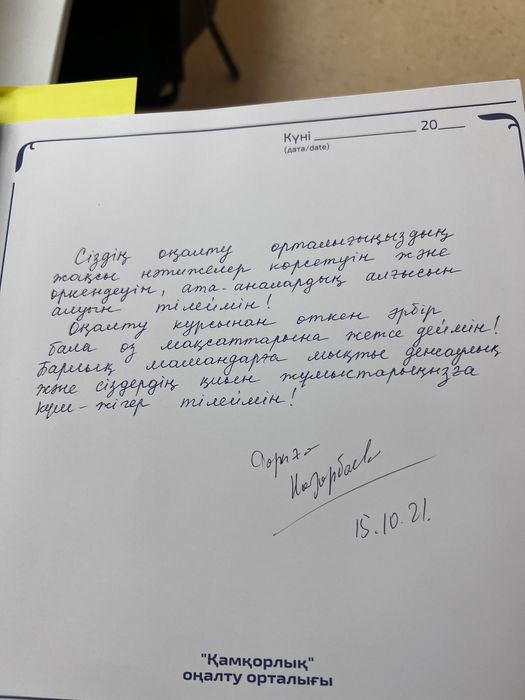 Күні ____________ 20___
(дата/date)
Сіздің оңалту орталығыңыздың
жақсы нәтижелер көрсетуін және
өркендеуін, ата-аналардың алғысын
алуын тілеймін!
Оңалту курсынан өткен әрбір
бала өз мақсаттарына жетсе деймін!
Барлық мамандарға мықты денсаулық
және сіздердің қиын жұмыстарыңызға
күш-жігер тілеймін!
Дариға
Назарбаев
15.10.21.
"Қамқорлық"
оңалту орталығы